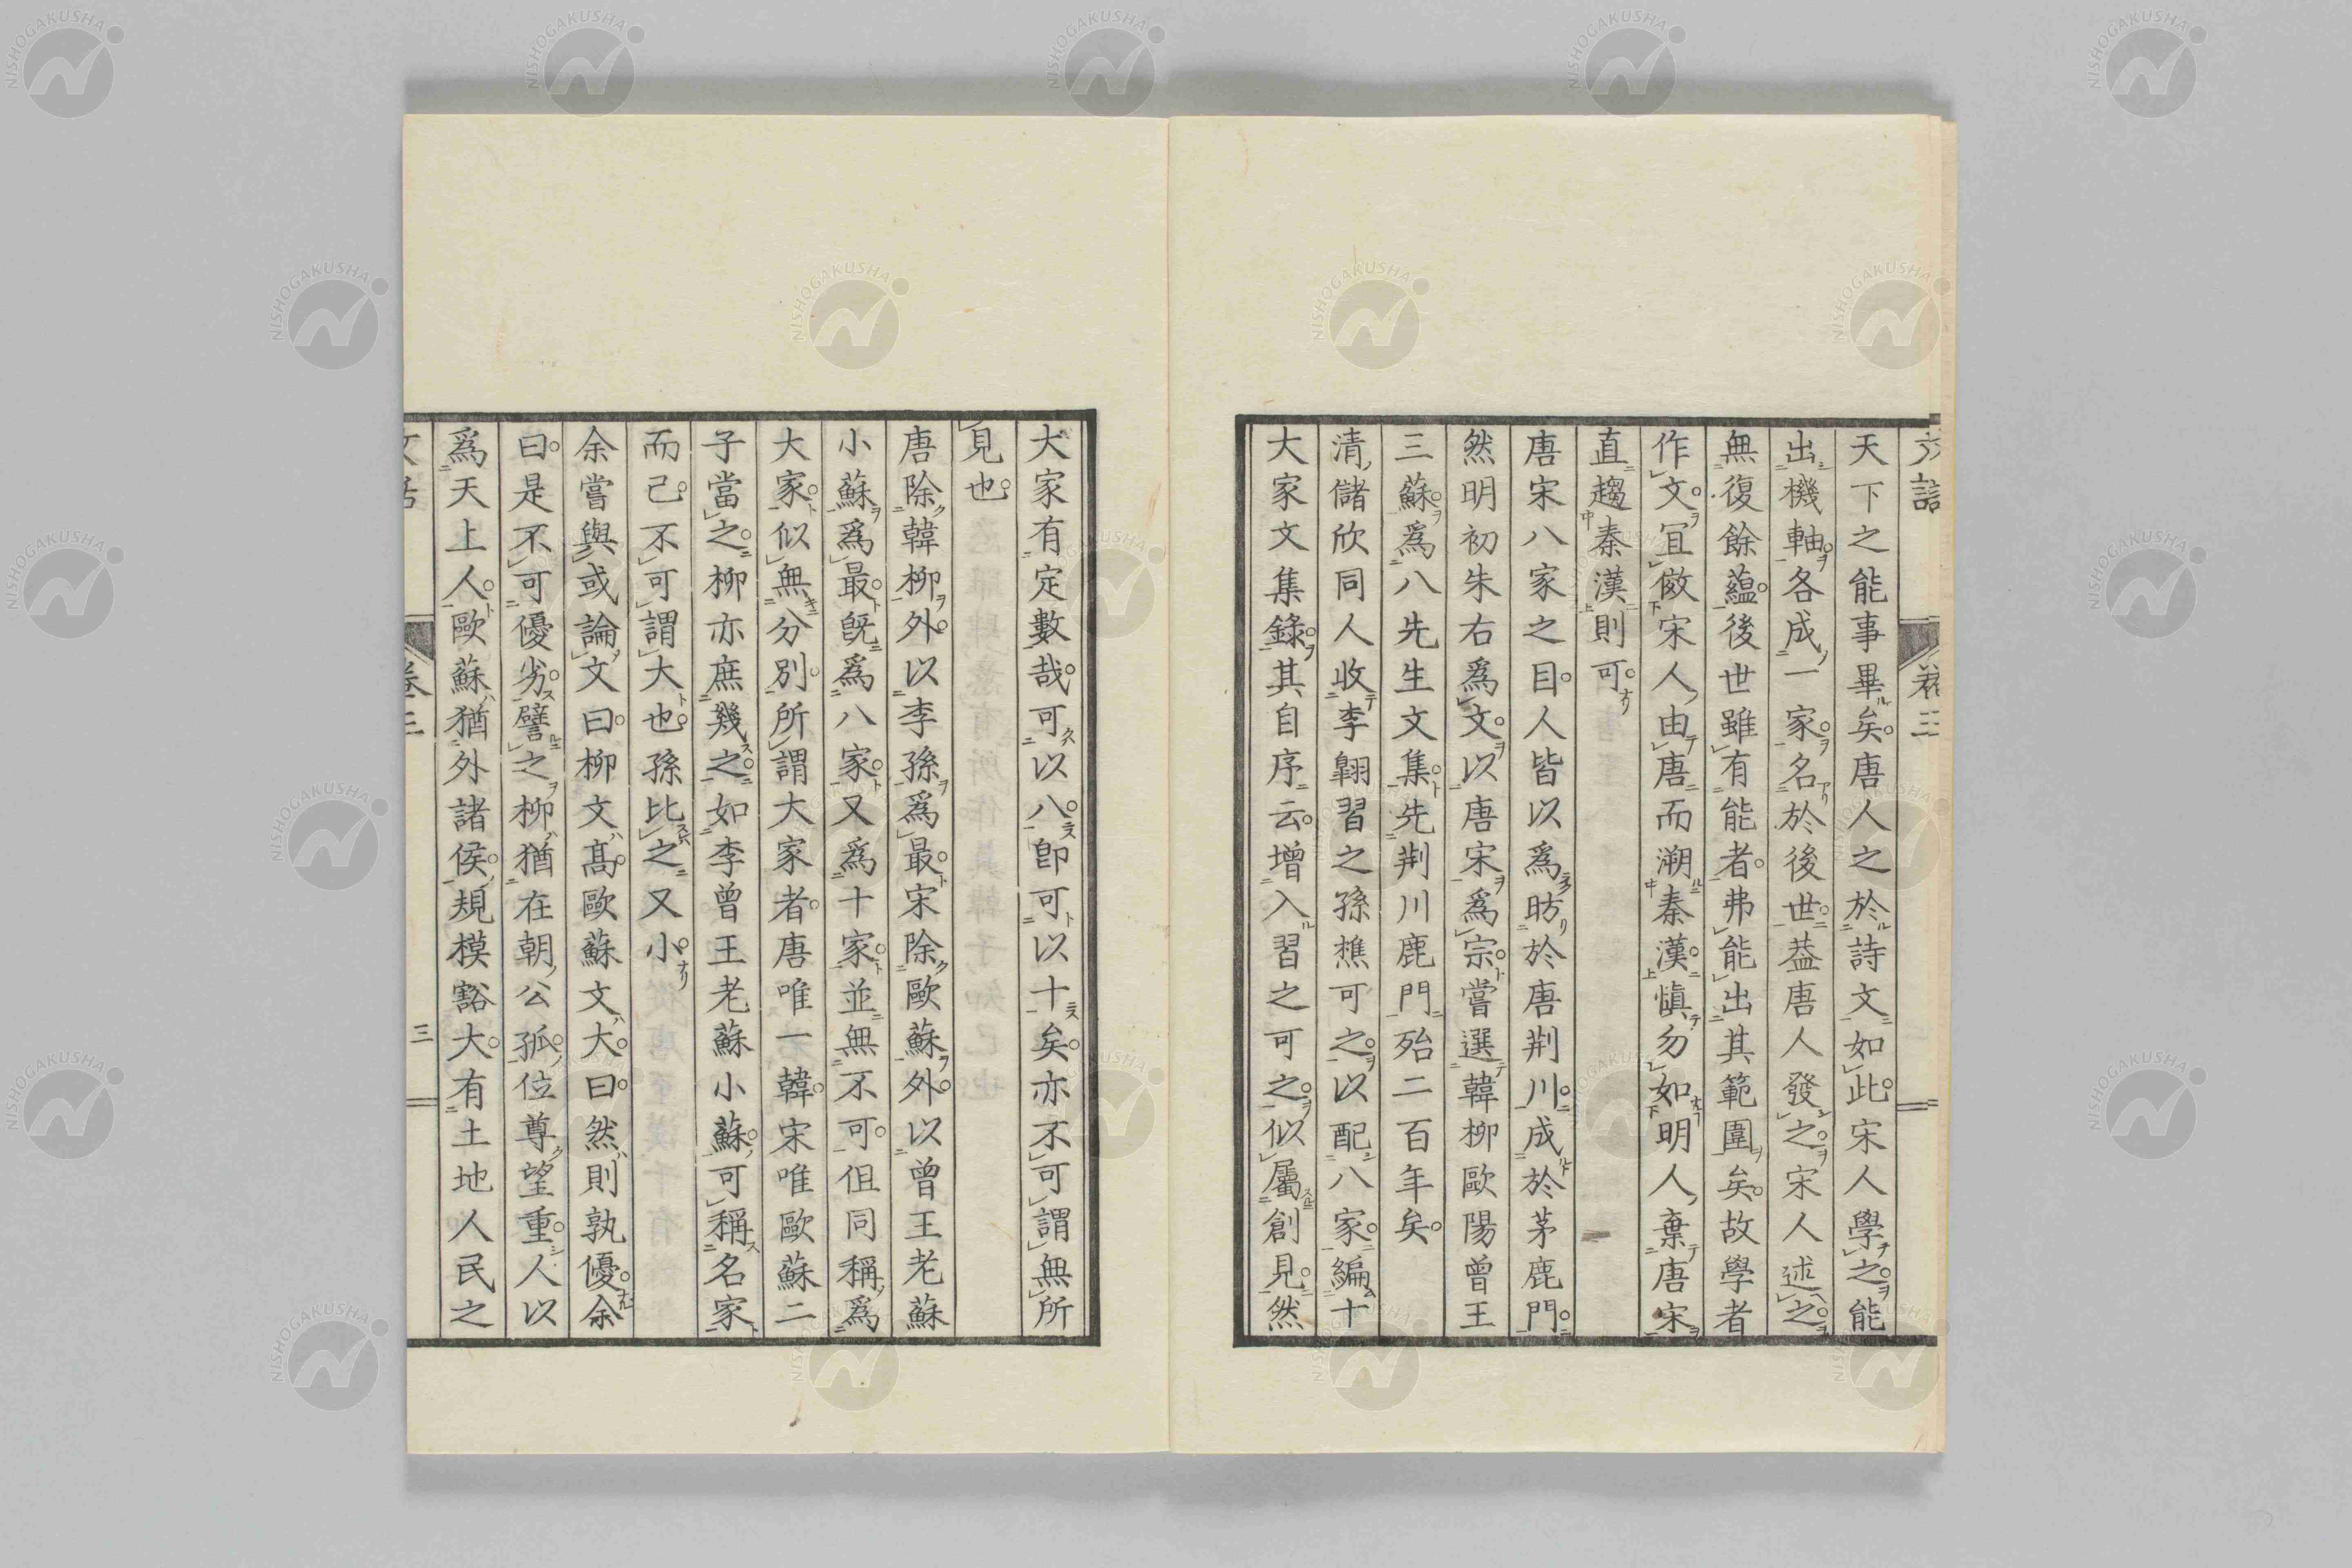 天下之能事畢矣。唐人之於詩文如此。宋人學之。能
出機軸。各成一家。名於後世。葢唐人發之。宋人述之。
無復餘蘊。後世雖有能者。弗能出其範圍矣。故學者
作文。宜倣宋人由唐而溯秦漢。慎勿如明人棄唐宋
直趨秦漢則可。
唐宋八家之目。人皆以爲昉於唐荆川。成於茅鹿門。
然明初朱右爲文。以唐宋爲宗。嘗選韓柳歐陽曾王
三蘇。爲八先生文集。先荆川鹿門殆二百年矣。
清儲欣同人收李翶習之孫樵可之。以配八家。編十
大家文集錄。其自序云。增入習之可之。似屬創見。然
大家有定數哉。可以八。卽可以十矣。亦不可謂無所
見也。
唐除韓柳外。以李孫爲最。宋除歐蘇外。以曾王老蘇
小蘇爲最。旣爲八家。又爲十家。並無不可。但同稱爲
大家。似無分別。所謂大家者。唐唯一韓。宋唯歐蘇二
子當之。柳亦庶幾之。如李曾王老蘇小蘇。可稱名家
而已。不可謂大也。孫比之又小。
余嘗與或論文曰。柳文高。歐蘇文大。曰。然則孰優。余
曰。是不可優劣。譬之柳猶在朝公孤。位尊望重。人以
爲天上人。歐蘇猶外諸侯。規模豁大。有土地人民之
卷三
三